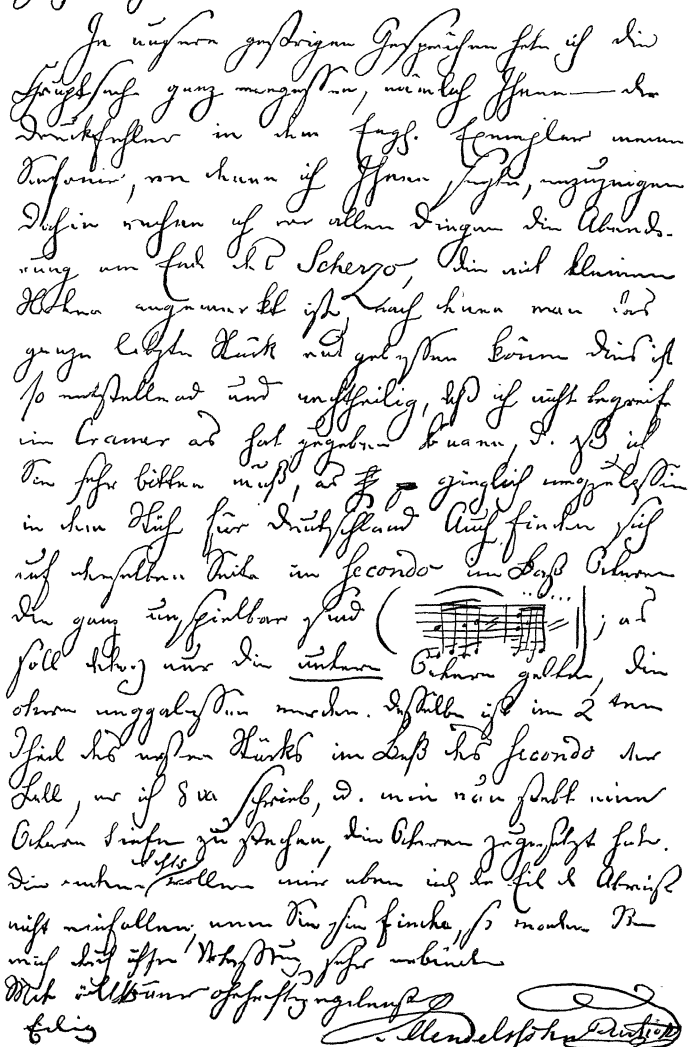 In unsern gestrigen Gesprächen habe ich die
Hauptsache ganz vergessen, nämlich Ihnen — die
Druckfehler in dem Engl. Exemplar meiner
Sinfonie, von denen ich Ihnen sagte, anzuzeigen
Dahin rechne ich vor allen Dingen die
am Ende des Scherzo, die mit kleinen
Noten angemerkt ist, nach denen man das
ganze letzte Stück auslassen könne dies ist
so entstellend und nachtheilig, daß ich nicht begreife
wie Cramer es hat zugeben können, u. daß ich
Sie sehr bitten muß, es gänzlich wegzulassen
in dem Stich für Deutschland Auch finden sich
auf derselben Seite im Secondo im Baß Octaven
die ganz unspielbar sind ( ) ; es
soll nur die untern Octaven gelten, die
obern weggelassen werden. Dasselbe ist im 2ten
Theil des ersten Stücks im Baß des Secondo der
Fall, wo ich 8va schrieb, u. man nun statt eine
Octave tiefer zu stechen, die Octaven zugesetzt hat.
Die andern wollen mir eben in der Eil
nicht einfallen, wenn Sie sie finden, so werden Sie
mich durch sehr verbinden
Mit vollkommener
Eilig
Mendelssohn Bartholdy